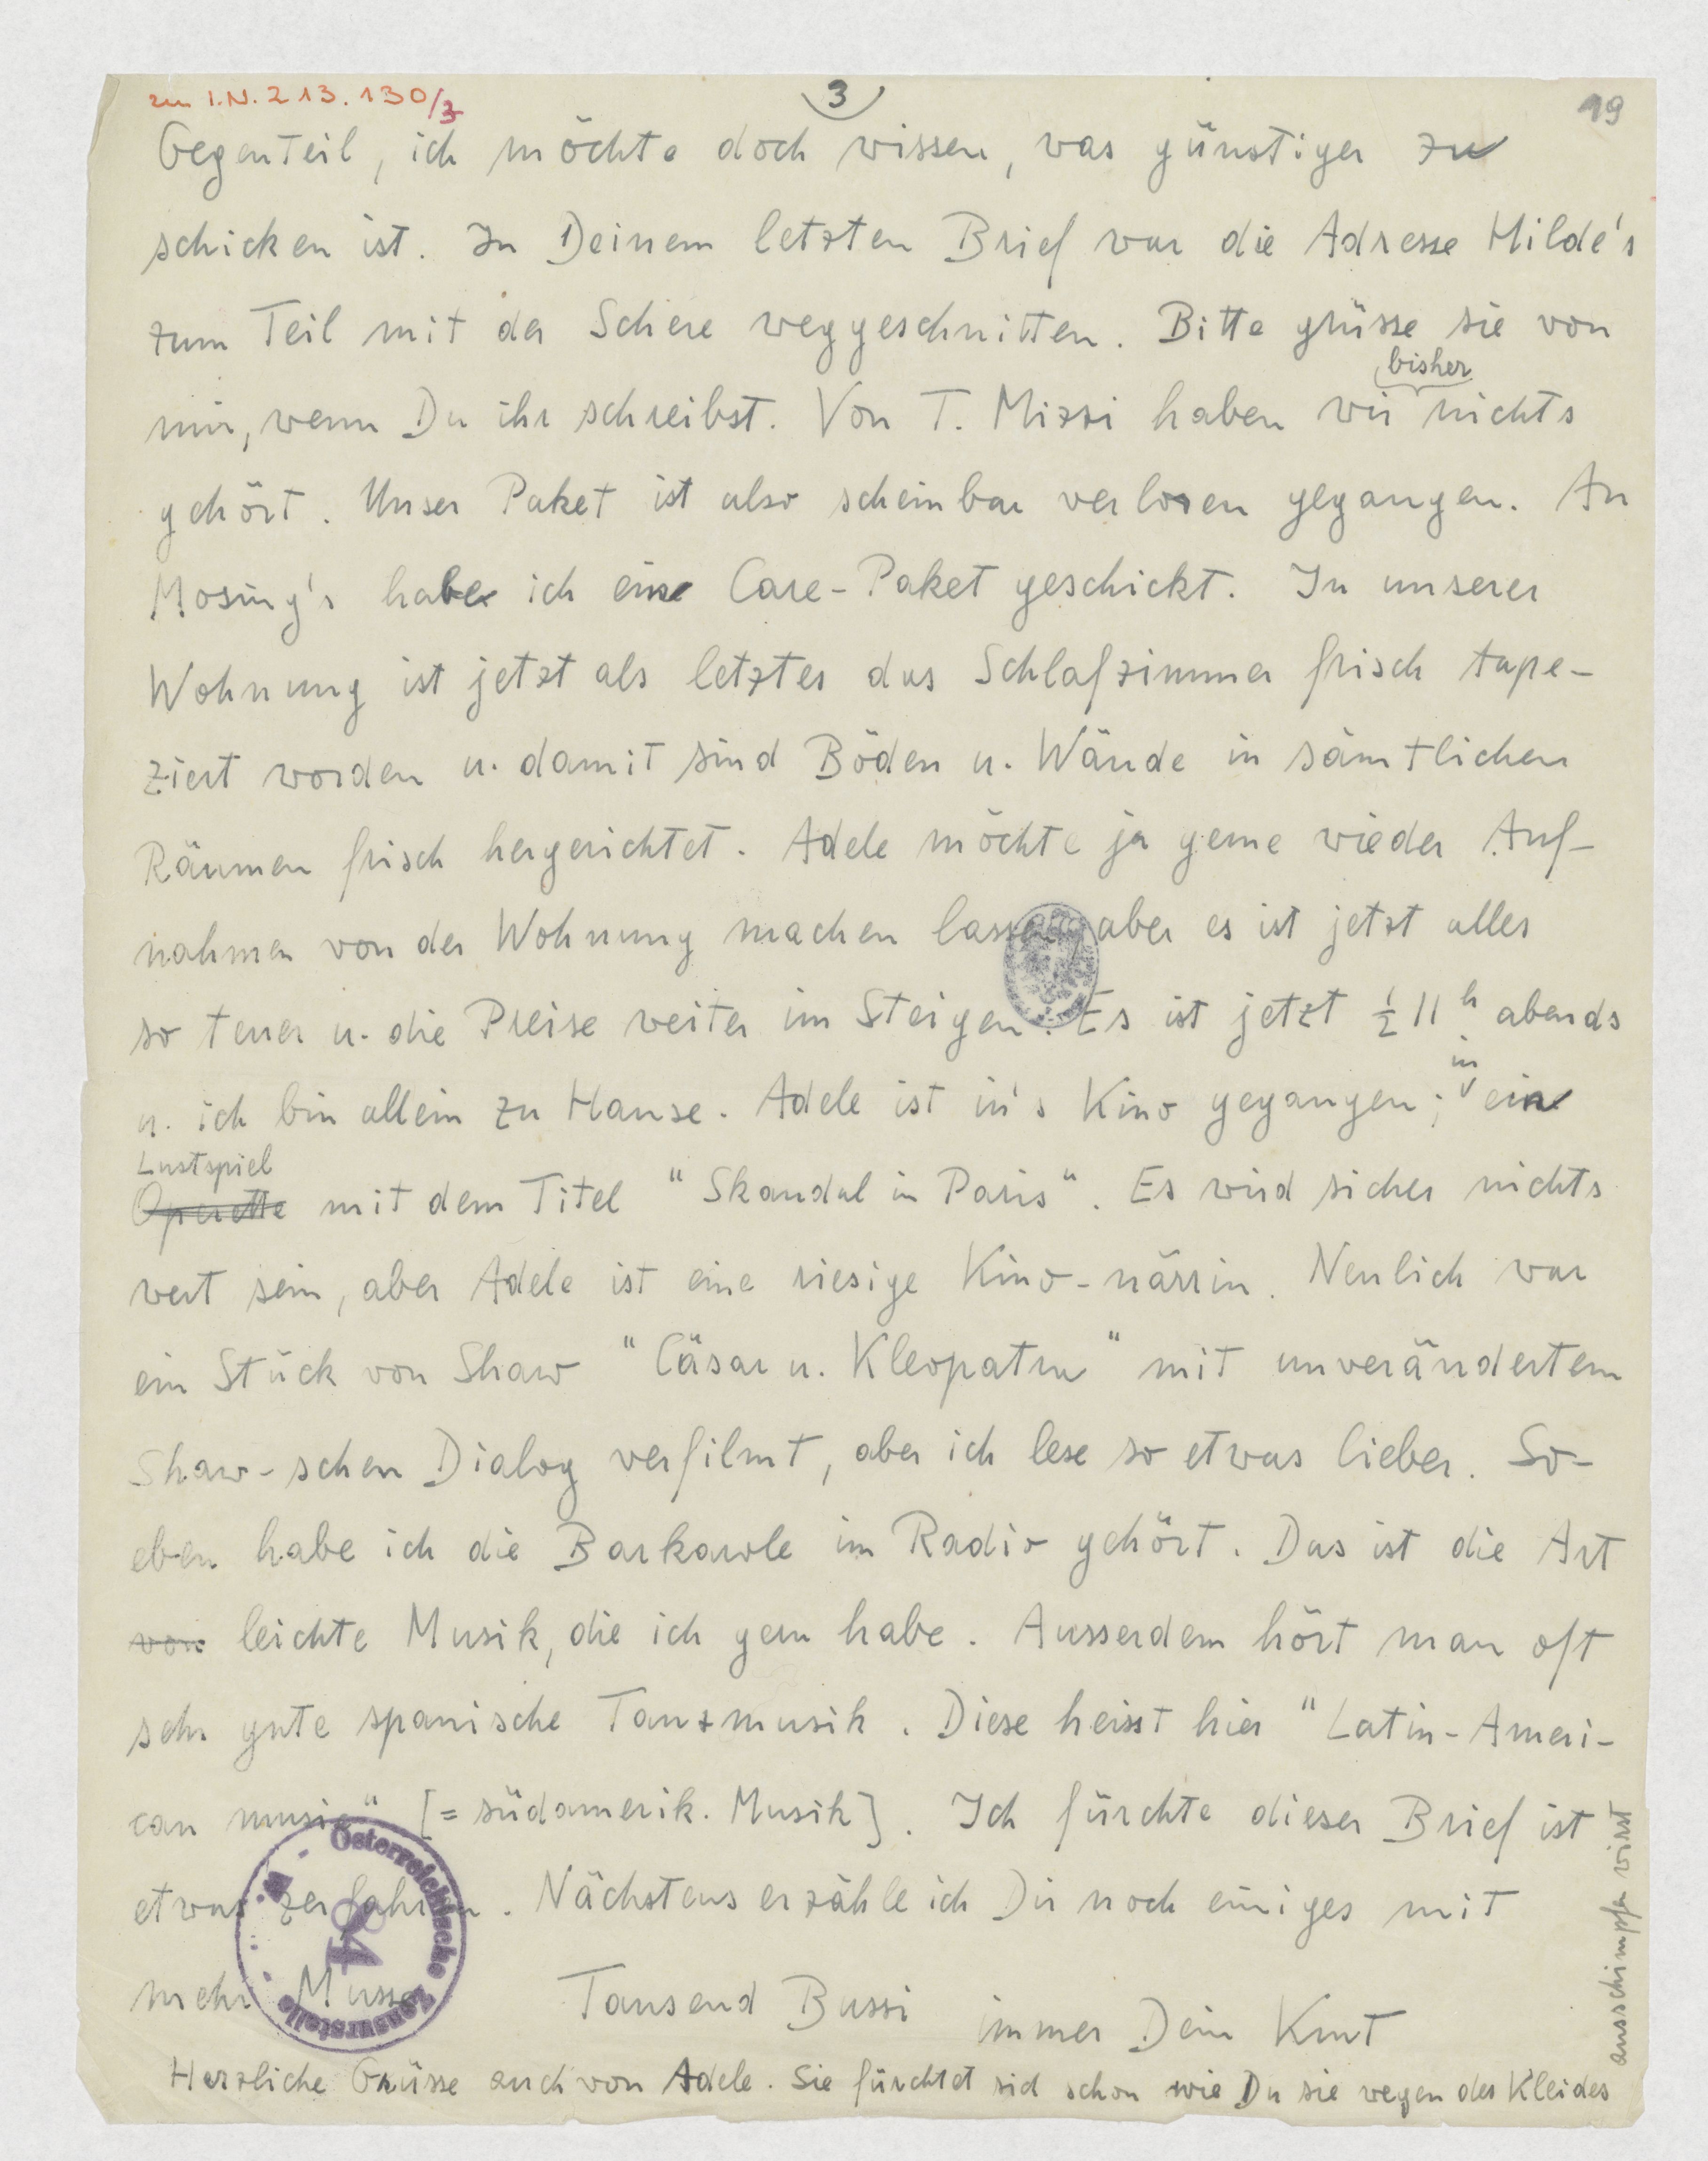 zu I.N. 213.130/3
3
19
Gegenteil, ich möchte doch wissen, was günstiger zu
schicken ist. In Deinem letzten Brief war die Adresse Hilde's
zum Teil mit der Schere weggeschnitten. Bitte grüsse sie von
bisher
mir, wenn Du ihr schreibst. Von T. Mizzi haben wir nichts
gehört. Unser Paket ist also scheinbar verloren gegangen. An
Mosing's habe ich eine Care-Paket geschickt. In unserer
Wohnung ist jetzt als letztes das Schlafzimmer frisch tape-
ziert worden u. damit sind Böden u. Wände in sämtlichen
Räumen frisch hergerichtet. Adele möchte ja gerne wieder Auf-
nahmen von der Wohnung machen lassen, aber es ist jetzt alles
so teuer u. die Preise weiter im Steigen. Es ist jetzt ½ 11 h abends
in
u. ich bin allein zu Hause. Adele ist in's Kino gegangen; ein
Lustspiel
Operette mit dem Titel "Skandal in Paris". Es wird sicher nichts
wert sein, aber Adele ist eine riesige Kino-närrin. Neulich war
ein Stück von Shaw "Cäsar u. Kleopatra" mit unverändertem
Shaw-schen Dialog verfilmt, aber ich lese so etwas lieber. So-
eben habe ich die Barkarole im Radio gehört. Das ist die Art
von leichte Musik, die ich gern habe. Ausserdem hört man oft
sehr gute spanische Tanzmusik. Diese heisst hier "Latin-Ameri-
can music" [= südamerik. Musik]. Ich fürchte dieser Brief ist
etwas zerfahren. Nächstens erzähle ich Dir noch einiges mit
mehr Musse. Tausend Bussi immer Dein Kurt
Herzliche Grüsse auch von Adele. Sie fürchtet sich schon wie Du sie wegen des Kleides
ausschimpfen wirst
Österreichische Zensurstelle